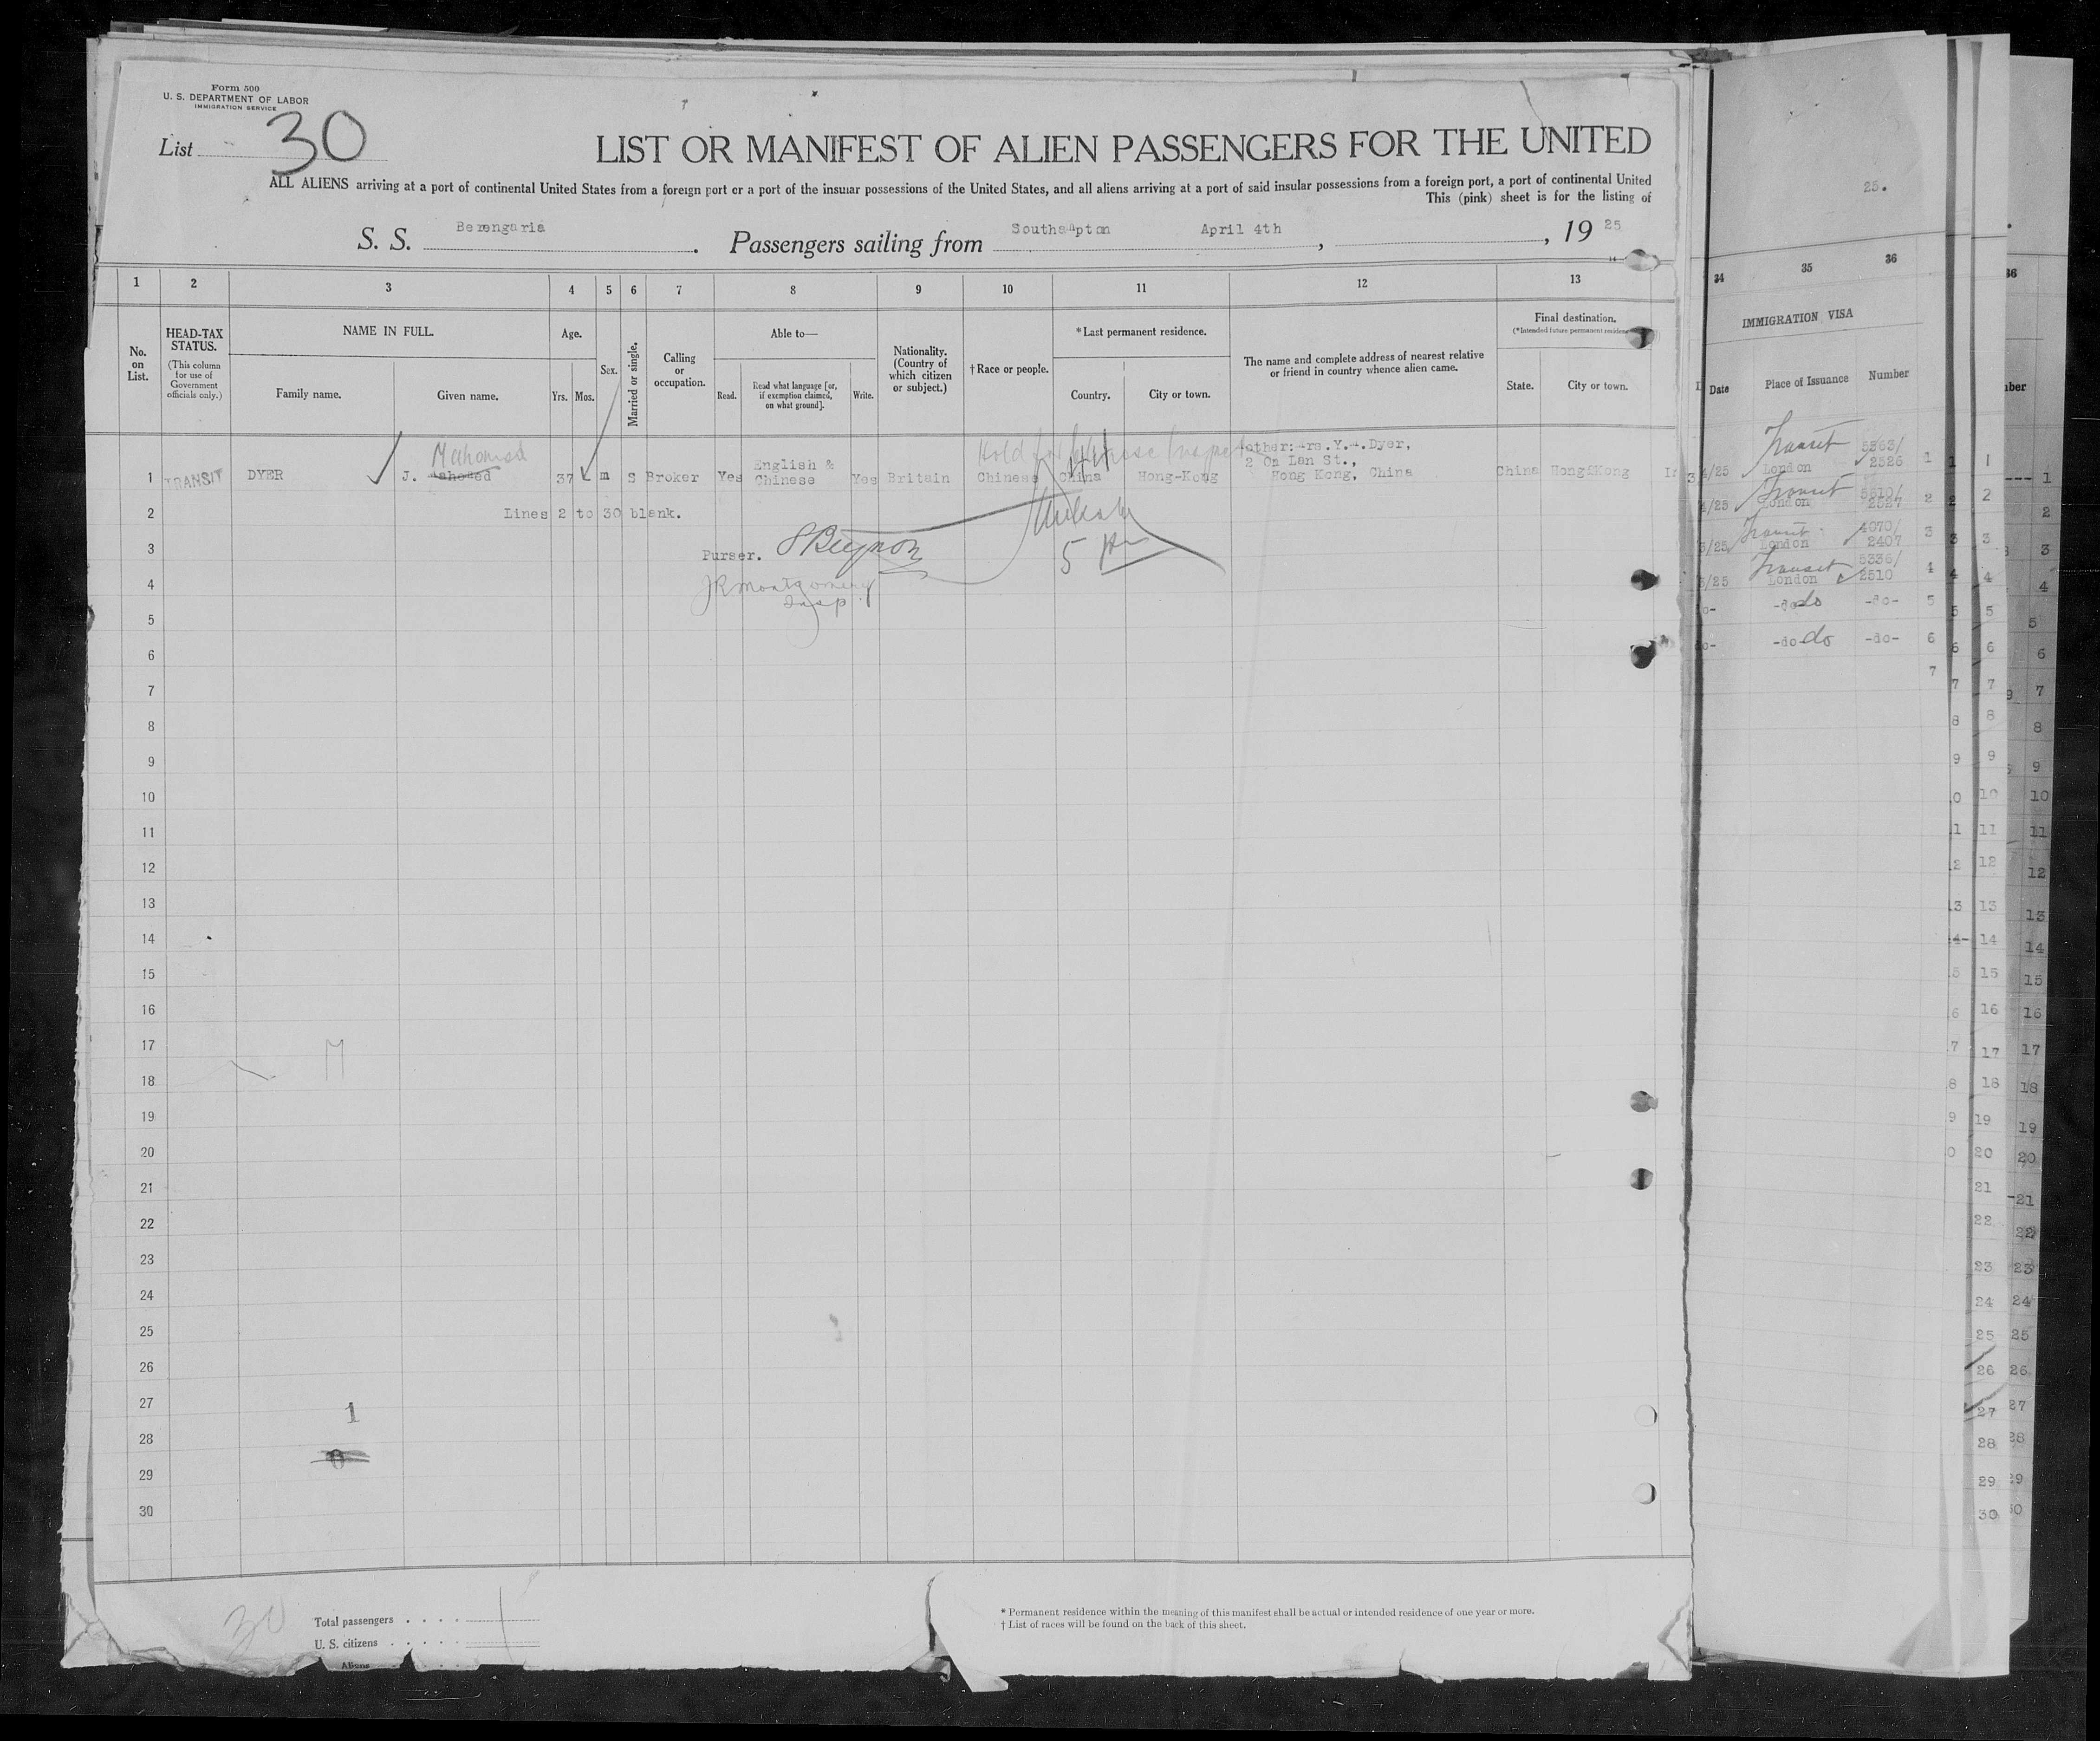 Form 500
U. S. DEPARTMENT OF LABOR
IMMIGRATION SERVICE
List 30
LIST OR MANIFEST OF ALIEN PASSENGERS FOR THE UNITED
ALL ALIENS arriving at a port of continental United States from a foreign port or a port of the insular possessions of the United States, and all aliens arriving at a port of said insular possessions from a foreign port, a port of continental United
This (pink) sheet is for the listing of
25.
S. S. Berengaria. Passengers sailing from Southampton April 4th, , 19 25
1 2 3 4 5 6 7 8 9 10 11 12 13
34 35 36
IMMIGRATION VISA
Date Place of Issuance Number
No. on List.
HEAD-TAX STATUS.
(This column for use of Government officials only.)
NAME IN FULL.
Family name. Given name.
Age.
Yrs. Mos.
Sex.
Married or single.
Calling or occupation.
Able to—
Read. Read what language [or, if exemption claimed, on what ground]. Write.
Nationality. (Country of which citizen or subject.)
† Race or people.
* Last permanent residence.
Country. City or town.
The name and complete address of nearest relative or friend in country whence alien came.
Final destination.
(*Intended future permanent residence
State. City or town.
Hold for Chinese
1 TRANSIT DYER J. 37 m S Broker Yes English & Chinese Yes Britain Chinese China Hong-Kong
Mrs. Y. Dyer,
2 On Lan St.,
Hong Kong, China
China Hong Kong
2 Lines 2 to 30 blank.
3 Purser.
5
4 J R Montgomery
Insp
5
6
7
8
9
10
11
12
13
14
15
16
17
M
18
19
20
21
22
23
24
25
26
27
1
28
0
29
30
4/25 Transit London 5363/ 2526 1
4/25 Transit London 2
3/25 Transit London 4070/ 2407 3
3/25 Transit London 5336/ 2510 4
-do- do -do- 5
-do- do -do- 6
7
30
Total passengers . . . . 1
U. S. citizens . . . . .
Aliens
* Permanent residence within the meaning of this manifest shall be actual or intended residence of one year or more.
† List of races will be found on the back of this sheet.